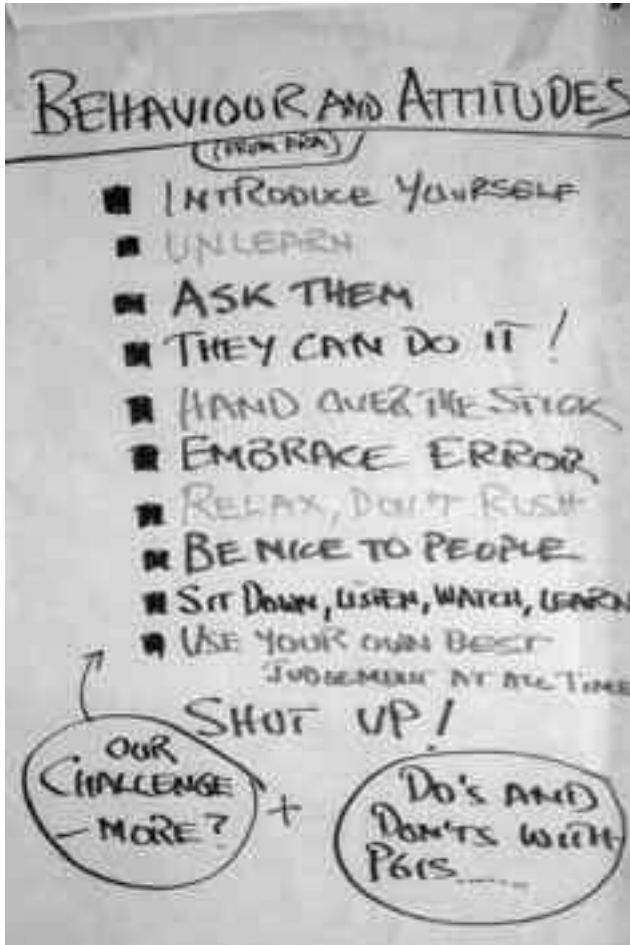 BEHAVIOUR AND ATTITUDES
(FROM PRA)
INTRODUCE YOURSELF
UNLEARN
ASK THEM
THEY CAN DO IT!
HAND OVER THE STICK
EMBRACE ERROR
RELAX, DON'T RUSH
BE NICE TO PEOPLE
SIT DOWN, LISTEN, WATCH, LEARN
USE YOUR OWN BEST
JUDGEMENT AT ALL TIME
SHUT UP!
OUR
CHALLENGE
- MORE?
+
DO'S AND
DON'TS WITH
PGIS.....